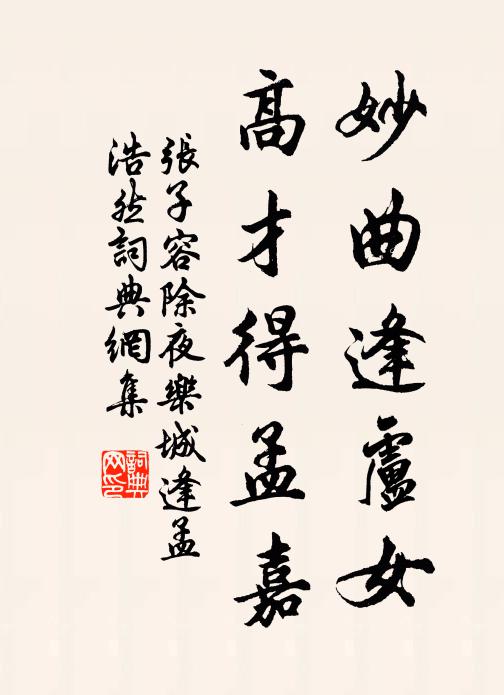 妙曲逢盧女
高才得孟嘉
張子容除夜樂城逢孟
浩然詞典網集
詞典
网印